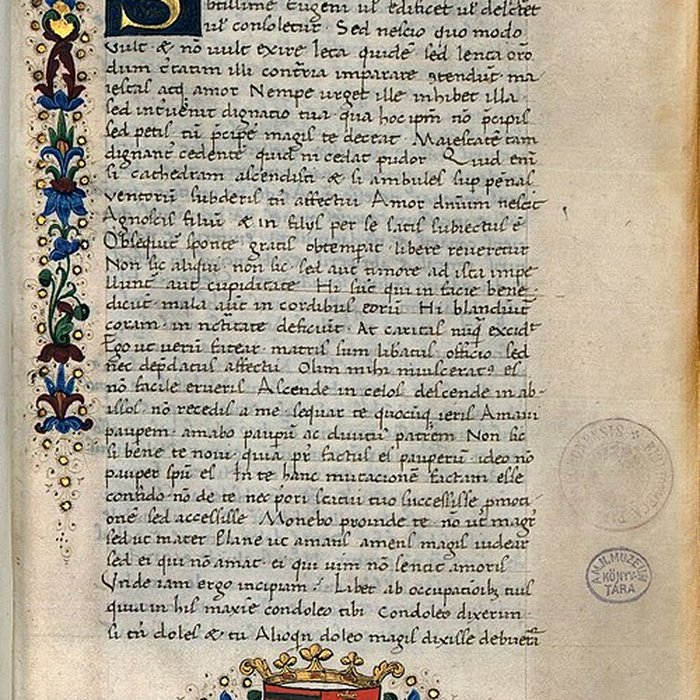 S
btillime Eugeni ut edificet ut delectet
ut consoletur. Sed nescio quo modo
vult & nō vult exire leta quidē sed lenta oro
dum c̄tatim illi cont̄ria imparare ɔtendūt ma
iestas atq̨ amor Nempe urget ille inhibet illa
sed int̄venit dignatio tua qua hoc ip̄m nō p̄cipis
sed petis cū p̄cip̄e magis te deceat. Maiestate tam
dignant̄ cedente quid ni cedat pudor Quid eni
si cathedram ascendisti & si ambules sup penas
ventorū subderis tn̄ affectui Amor dn̄um nescit
Agnoscit filiū & in filijs per se satis subiectus ē
Obsequit̄ sponte gratis obtempat libere reveretur
Non sic aliqui non sic sed aut timore ad ista impe
llunt̄ aut cupiditate Hi sūt qui in facie bene
dicūt mala aūt in cordibus eorū Hi blandiūt̄
coram in nc̄itate deficiūt. At caritas nūq̄ excidt
Ego ut verū fatear matris sum libatus officio sed
nec dep̄datus affectu Olim mihi inviscerat9 es
nō facile erueris Ascende in celos descende in ab-
issos nō recedis a me sequar te quocūq̨ ieris Amavi
paupem amabo paupū ac divitū patrem Non sic
si bene te novi quia pr̄ factus es pauperū ideo nō
pauper spū es In te hanc mutacionem factam esse
confido nō de te nec p̄ori statui tuo successisse p̄moti
onē sed accessisse Monebo proinde te nō ut maḡr
sed ut mater Plane ut amans amens magis videar
sed ei qui nō amat ei qui vim nō sentit amoris
Unde iam ergo incipiam? Libet ab occupationib; tuis
quia in his maxīe condoleo tibi Condoleo dixerim
si tn̄ doles & tu Alioqn̄ doleo magis dixisse debueri
A.M.N. MUZEUM
KÖNYV-
TÁRA